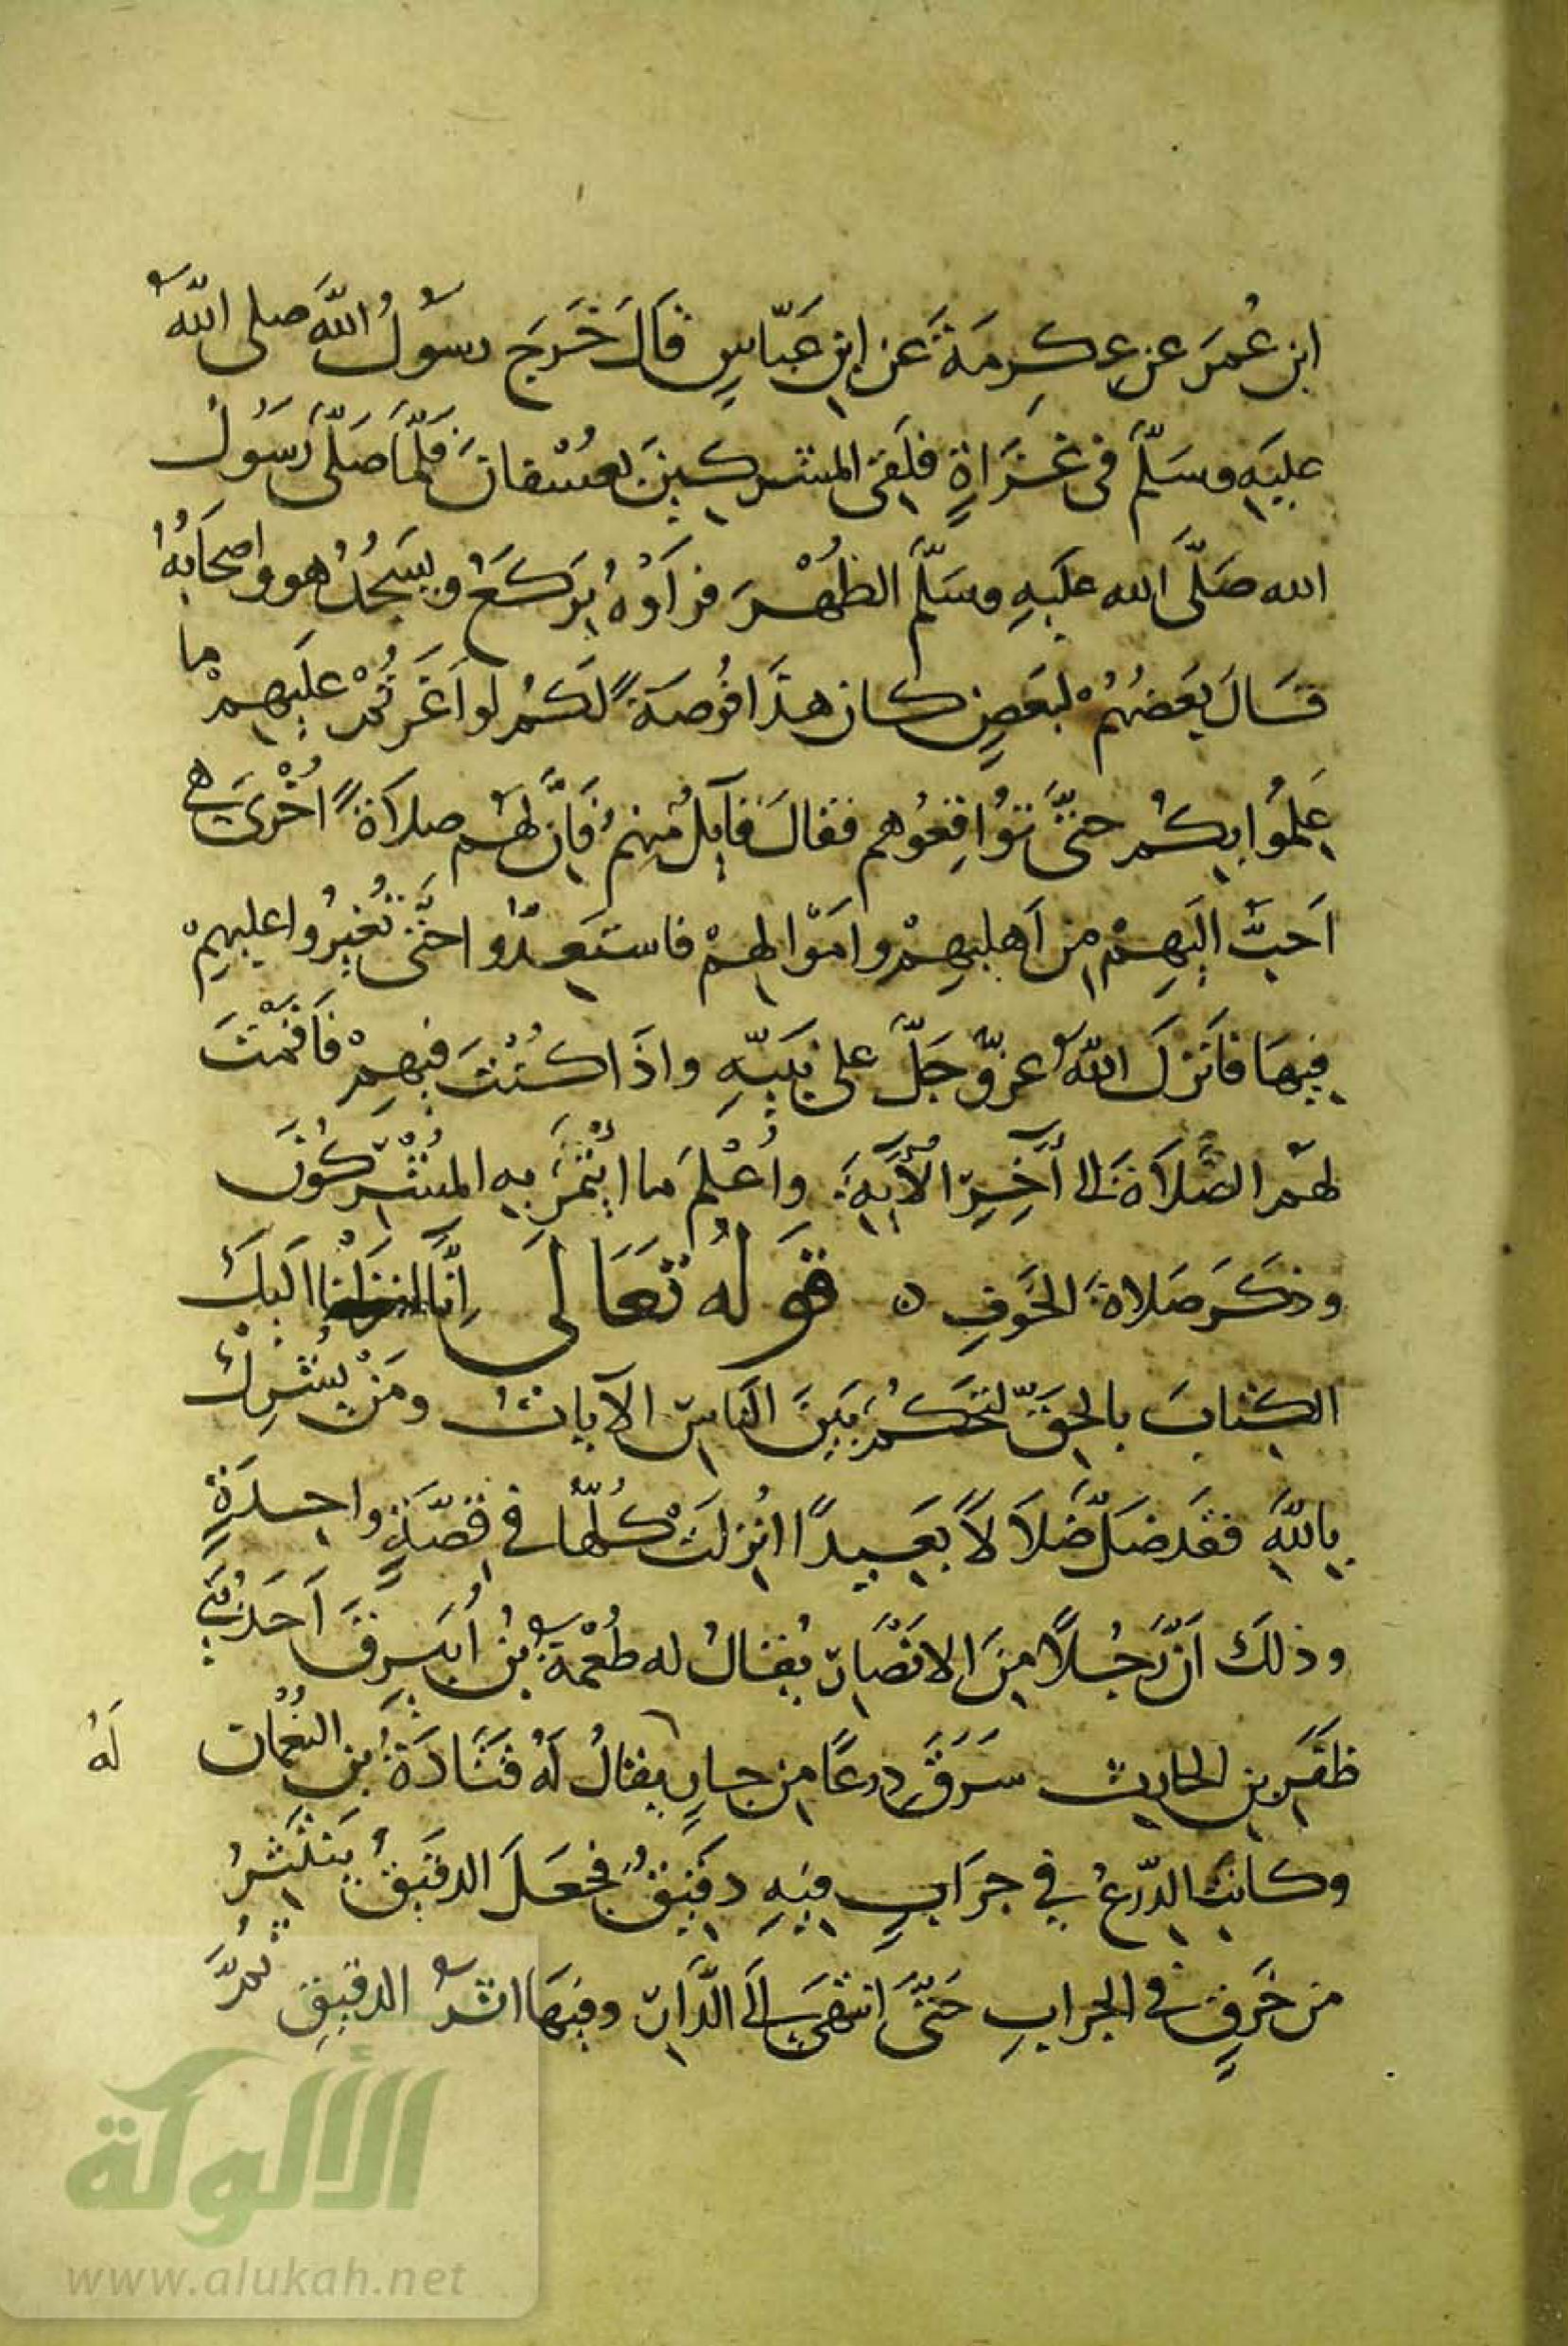 ابن عُمَرَ عن عِكرِمَةَ عَن ابنِ عَبّاسٍ قَالَ خَرَجَ رسُولُ اللهِ صلى اللهُ
عليَهِ وسَلَّمَ في غَزَاةٍ فلَقي المشركِينَ بعُسْفانَ فَلَّما صَلّى رَسُولُ
الله صَلَّى الله عليَهِ وسَلَّمَ الظُهْرَ فرَاَوْهُ يَركَعُ ويَسَجُدُ هو واصحَابُهُ
قَالَ بَعَضُهُمْ لبَعَضٍ كان هذَا فُرصَةً لَكُم لو اَغَرتُمْ عليَهِمْ ما
عَلِمُوا بِكُم حتَّى تُوَاقِعُوهم فقالَ قَايلٌ مِنهُم فَاِنَّ لهُم صلاَةً اُخْرىَ هي
اَحَبُّ اليَهِمْ مِن اَهليهِمْ وامَوَالِهمْ فاستَعِدُّوا حتَّى تُغِيرُوا عليهِمْ
فِيهَا فاَنزَلَ اللهُ عزَّ وجَلَّ على نَبيّهِ واذَا كُنْتَ فيهِمْ فاَقمْتَ
لهمُ الصَّلاَةَ الى آخِرِ الآيَةِ وأعْلمَ ما ايْتَمَرَ بهِ المُشْرِكُونَ
وذكَرَ صَلاةَ الخَوفِ ٥ قَولهُ تعَالَى اِنّا انزَلْنا اليَكَ
الكِتابَ بالحِقَّ لتَحكُمَ بَينَ النَاسِ الآياتُ ومَنْ يُشْرِكْ
بِاللهِ فقَد ضَلّ ضَلاَلاً بَعَيدًا انُزِلَتْ كُلّهُا في قصّةٍ واحِدَةٍ
وذلكَ اَنَّ رَجُلاً مِنَ الانصَارِ يُقالُ له طُعْمَةُ بنُ أُبيَرِقَ اَحَدُ بَنِي
ظفَرِ بنِ الحارِثِ سَرَقَ دِرعًا مِن جارٍ يقالُ لَهُ قتَادَةُ بن النعُمْان
لَهُ
وكانَتِ الدّرعُ في جِرَابٍ فيهِ دقَيِقٌ فَجعَلَ الدقيَقُ يَنتَثِرُ
من خَرقٍ في الجرابِ حَتىَّ انتهَىَ الَى الدّارِ وفيهَا اثرُ الدقيقِ ثمُّ
الألوكة
www.alukah.net